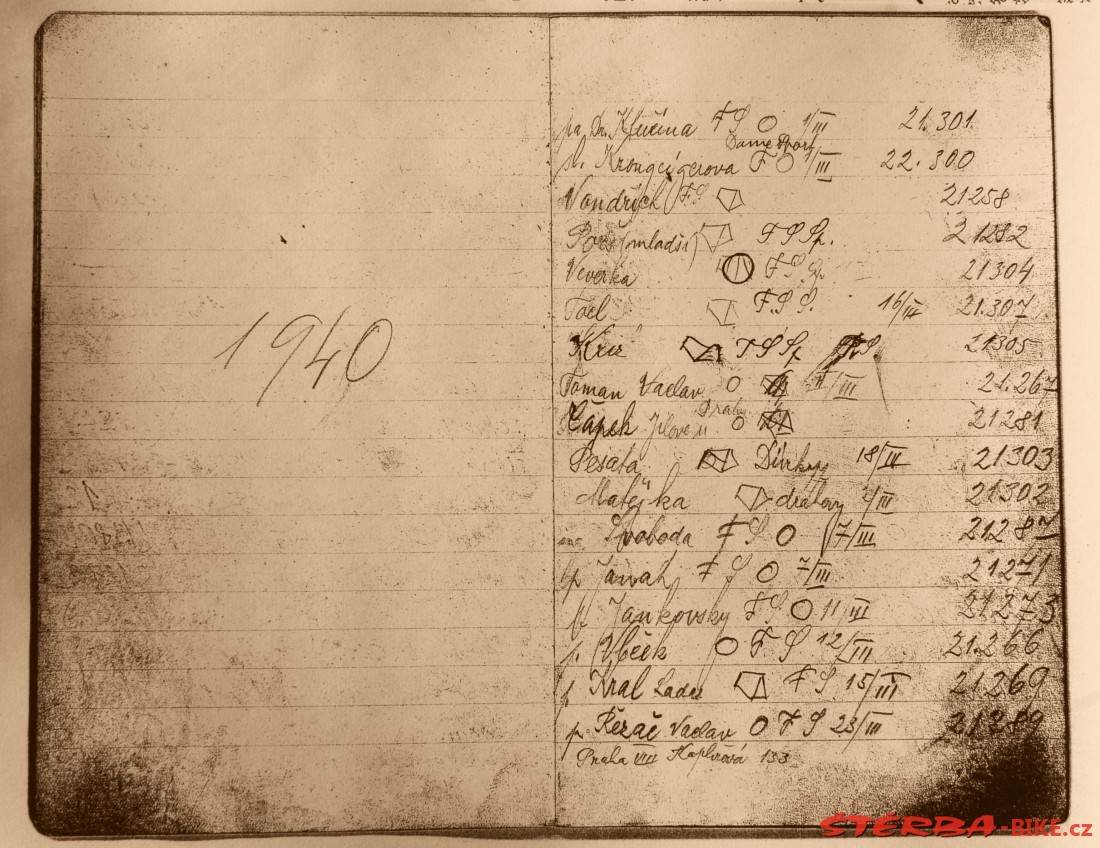 1940
pa. Dr. Klučina F S 1/III 21.301
Dame Sport
sl. F /III 22.300
Vondřich F.S 21258
(mladší) F S Sp. 21282
Veverka F S Sp. 21304
F.S S. 16/III 21.307
Kříž F S Sp 21305
Toman Vaclav /III 21.267
Čapek Jilove u Prahy 21281
Pesata 18/III 21303
Matějka dratovy /III 21302
Svoboda F S 7/III 21287
p F S 7/III 21271
p Jankovsky F S. 11/III 21273
p. Vlček F S 12/III 21.266
p Kral Ladis F S 15/III 21269
p. Řezač Vaclav F S 23/III 21289
Praha VIII Kaplířová 133
ŠTĚRBA-BIKE.cz